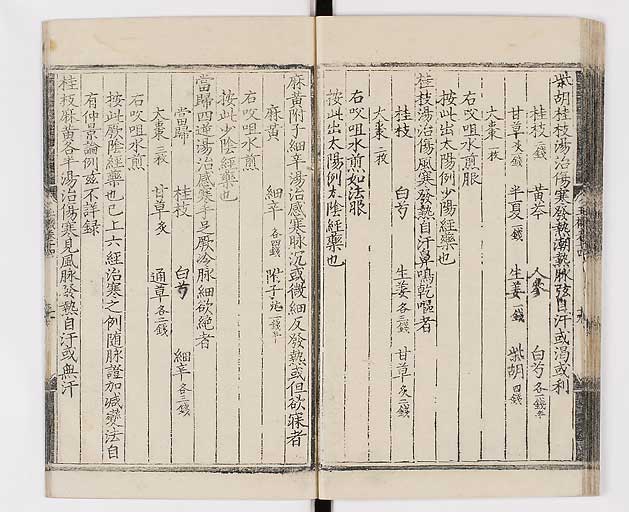 柴胡桂枝湯治傷寒發熱潮熱脉弦自汗或渴或利
桂枝二錢 黃芩 人參 白芍各一錢半
甘草炙錢 半夏一錢 生姜一錢 柴胡四錢
大棗二枚
右㕮咀水煎服
按此出太陽例少陽經藥也
桂枝湯治傷風寒發熱自汗鼻鳴乾嘔者
桂枝 白芍 生姜各三錢 甘草炙二錢
大棗二枚
右㕮咀水煎如法服
按此出太陽例太陰經藥也
麻黃附子細辛湯治感寒脉沉或微細反發熱或但欲寐者
麻黃 細辛各四錢 附子炮一錢半
右㕮咀水煎
按此少陰經藥也
當歸四逆湯治感寒手足厥冷脉細欲絶者
當歸 桂枝 白芍 細辛各三錢
大棗三枚 甘草炙 通草各二錢
右㕮咀水煎
按此厥陰經藥也已上六經治寒之例随脉證加减變法自
有仲景論例玆不詳録
桂枝麻黃各半湯治傷寒見風脉發熱自汗或無汗